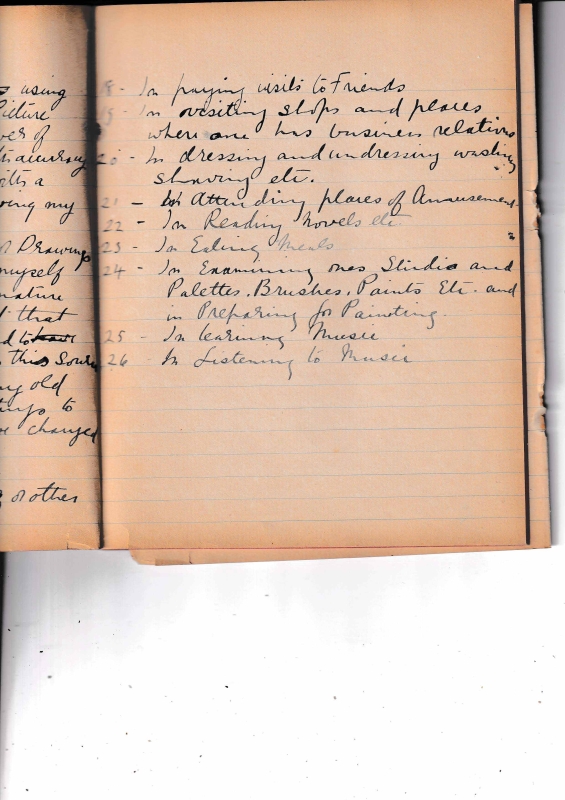 using
Picture
ver of
its accuracy
with a
ving my
or Drawings
myself
nature
d that
d to have
this Sour
my old
ings to
ve changed
or other
18 - In paying visits to Friends
19 - In visiting shops and places
where one has business relations
20 - In dressing and undressing washing
shaving etc.
21 - In Attending places of Amusement
22 - In Reading Novels etc
23 - In Eating Meals
24 - In Examining ones Studio and
Palettes, Brushes, Paints Etc. and
in Preparing for Painting.
25 - In learning Music
26 - In Listening to Music